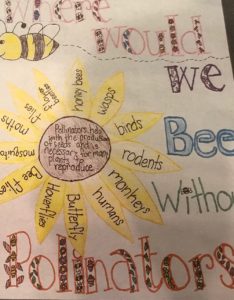 where
would
we
Bee
Withou
Pollinators
Pollinators help
with the production
of seeds and is
necessary for many
plants to
reproduce
honey bees
wasps
birds
rodents
monkeys
humans
Butterfly
Hoverflies
Bee flies
mosquitos
moths
flies